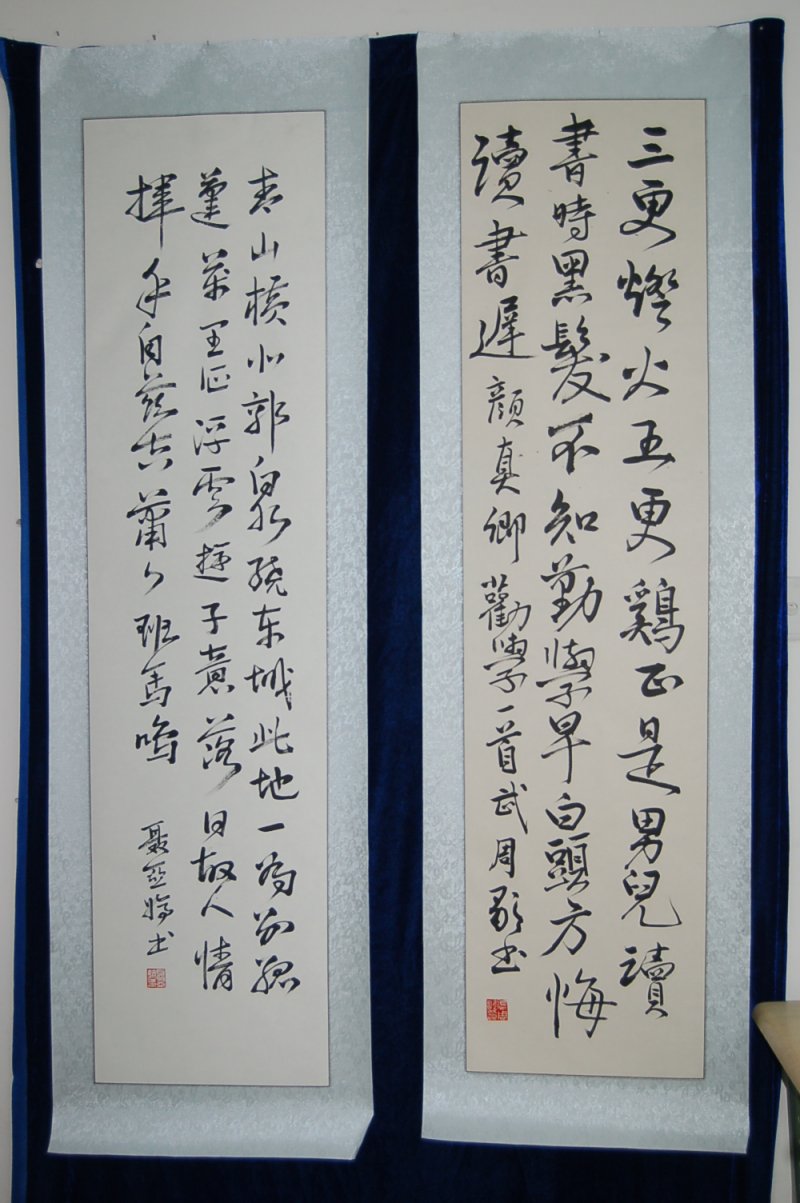 三更燈火五更鷄正是男兒讀
書時黑髮不知勤學早白頭方悔
讀書遲 顏真卿勸學一首武周书
青山横北郭白水绕东城此地一為别孤
蓬萬里征浮雲遊子意落日故人情
揮手自兹去蕭々班馬鳴 聂亞婷书